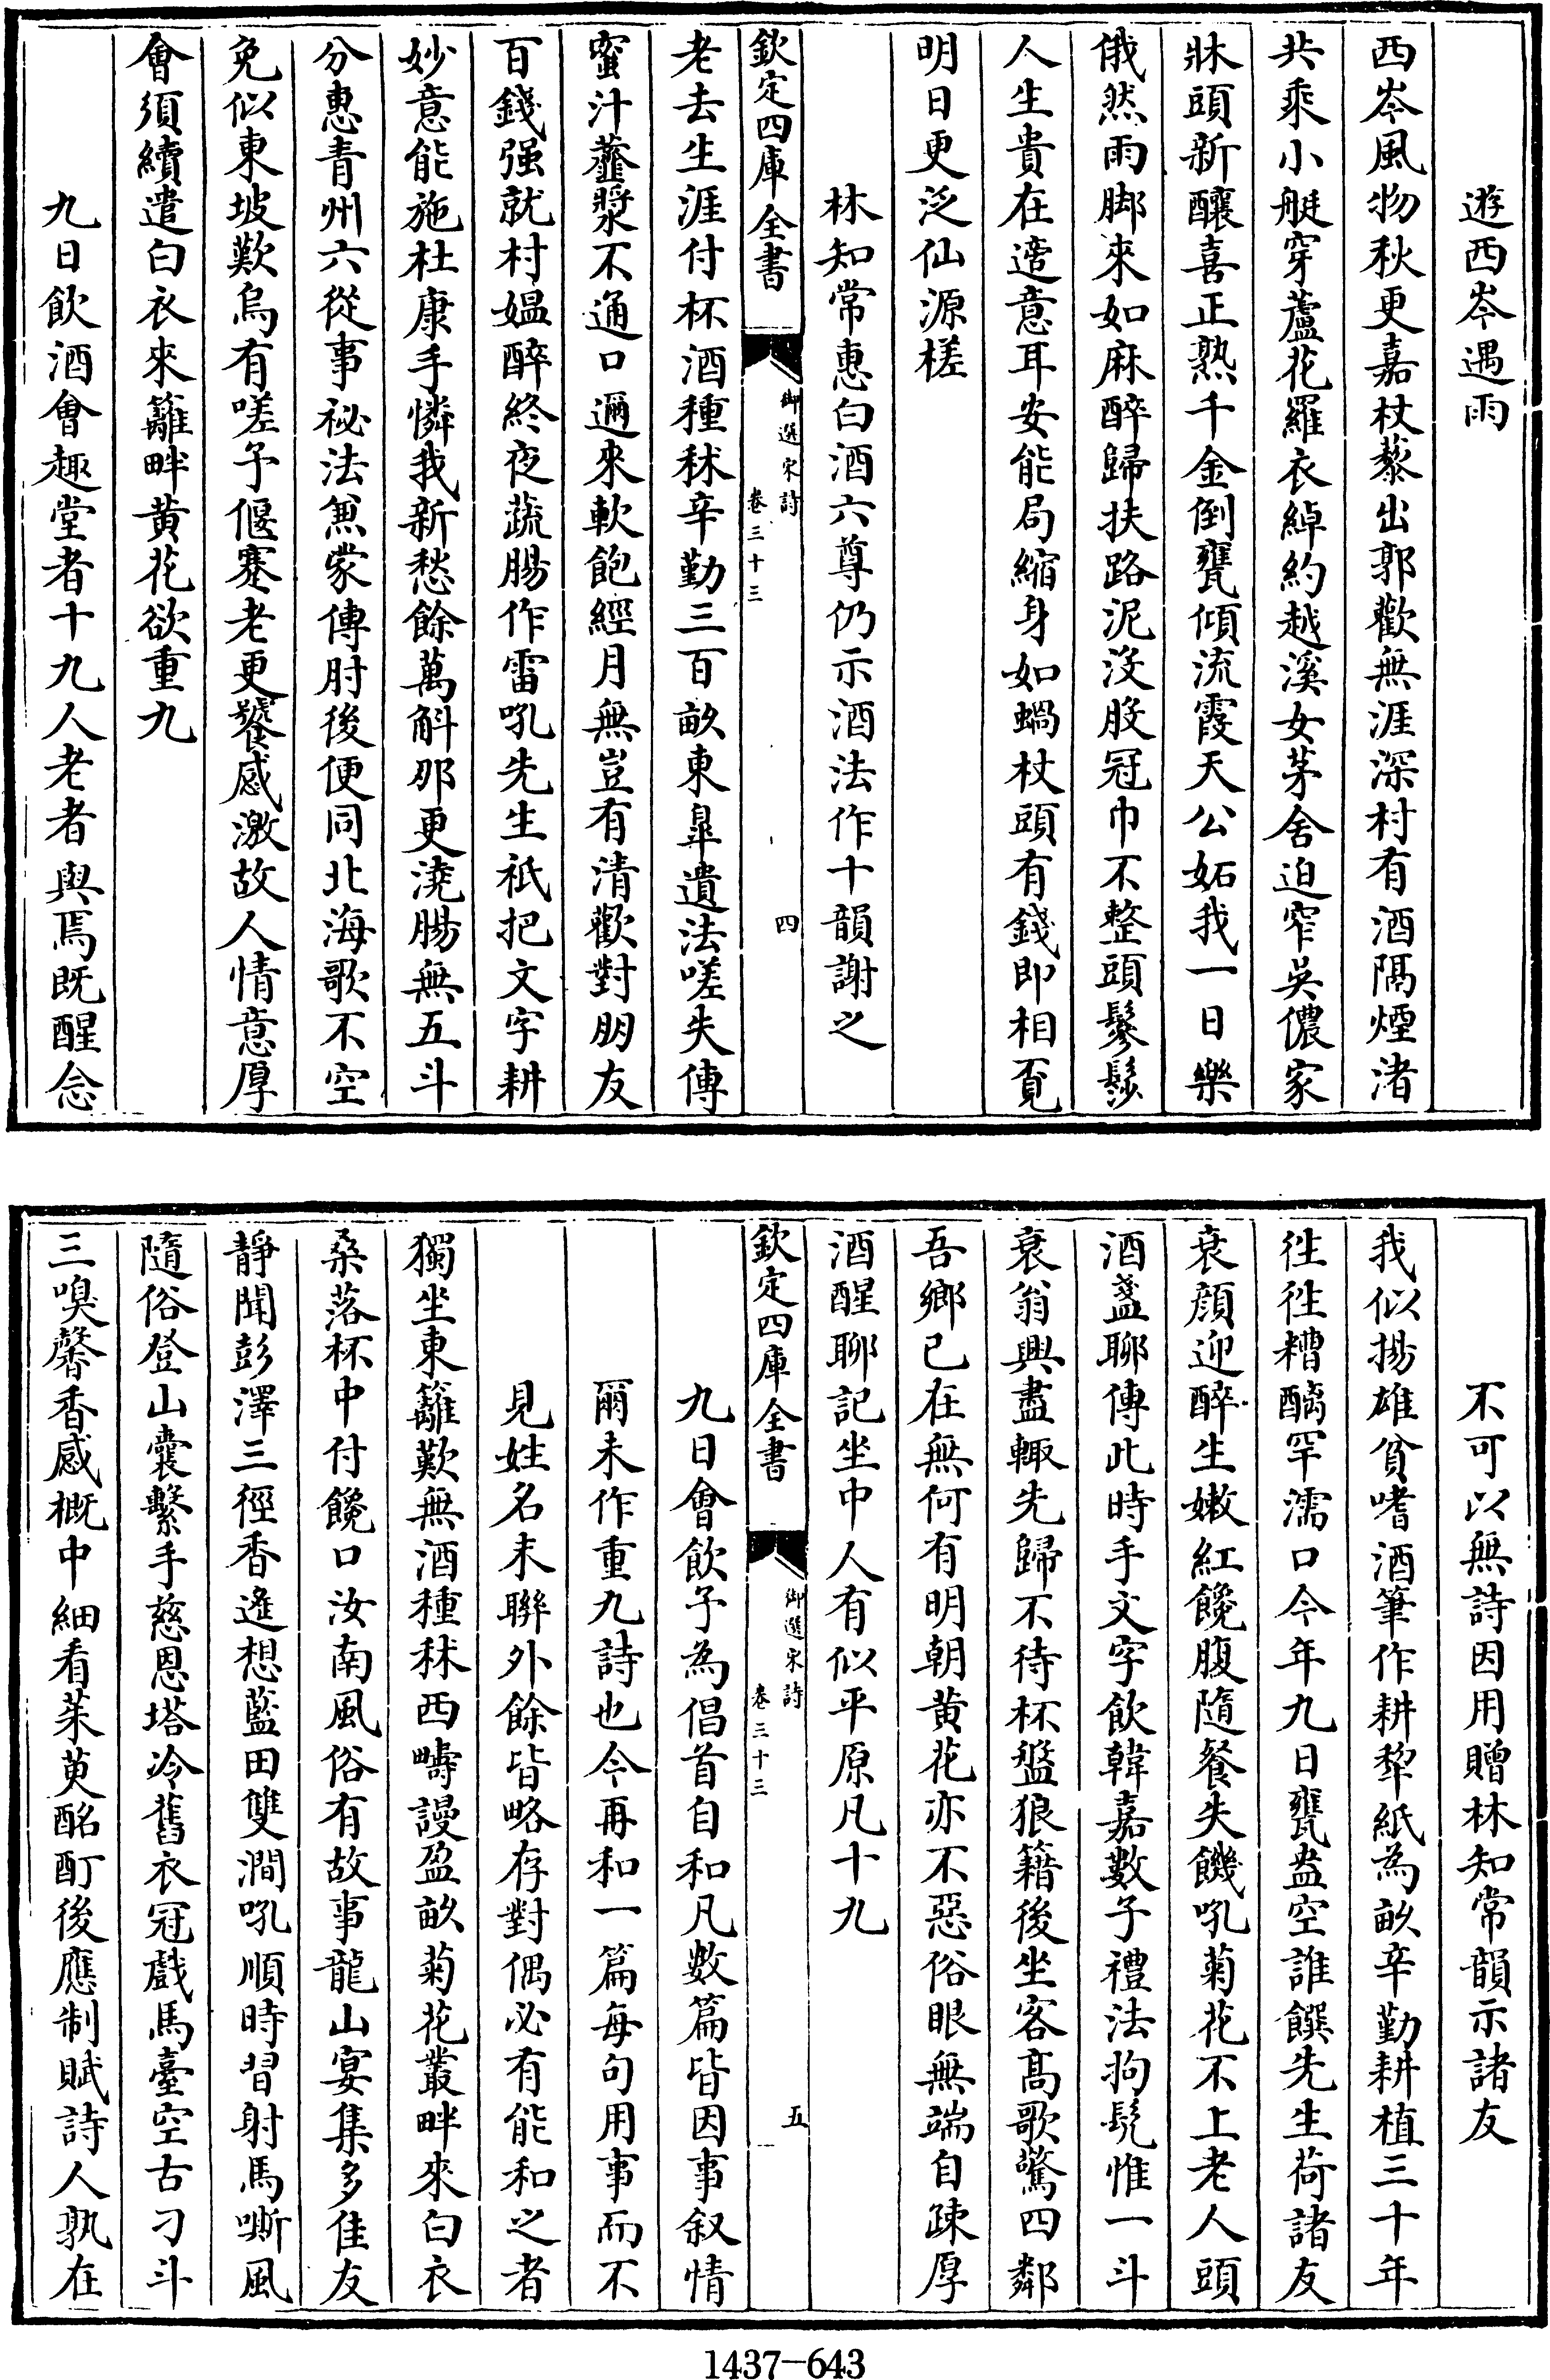 遊西岑遇雨
西岑風物秋更嘉杖藜出郭歡無涯深村有酒隔煙渚
共乘小艇穿蘆花羅衣綽約越溪女茅舍迫窄吳儂家
牀頭新釀喜正熟千金倒甕傾流霞天公妬我一日樂
俄然雨脚來如麻醉歸扶路泥沒股冠巾不整頭鬖髿
人生貴在適意耳安能局縮身如蝸杖頭有錢即相覔
明日更泛仙源槎
林知常惠白酒六尊仍示酒法作十韻謝之
欽定四庫全書
御選宋詩
卷三十三
四
老去生涯付杯酒種秫辛勤三百畝東臯遺法嗟失傳
蜜汁虀漿不通口邇來軟飽經月無豈有清歡對朋友
百錢强就村媼醉終夜蔬腸作雷吼先生祇把文字耕
妙意能施杜康手憐我新愁餘萬斛那更澆腸無五斗
分惠青州六從事祕法兼蒙傳肘後便同北海歌不空
免似東坡歎烏有嗟予偃蹇老更饕感激故人情意厚
會須續遣白衣來籬畔黃花欲重九
九日飲酒會趣堂者十九人老者與焉既醒念
不可以無詩因用贈林知常韻示諸友
我似揚雄貧嗜酒筆作耕犂紙為畝辛勤耕植三十年
徃徃糟醨罕濡口今年九日甕盎空誰饌先生荷諸友
衰顏迎醉生嫩紅饞腹隨餐失饑吼菊花不上老人頭
酒盞聊傳此時手文字飲韓嘉數子禮法拘髡惟一斗
衰翁興盡輙先歸不待杯盤狼籍後坐客高歌驚四鄰
吾鄉已在無何有明朝黃花亦不惡俗眼無端自疎厚
酒醒聊記坐中人有似平原凡十九
欽定四庫全書
御選宋詩
卷三十三
五
九日會飲予為倡首自和凡數篇皆因事叙情
爾未作重九詩也今再和一篇每句用事而不
見姓名末聯外餘皆略存對偶必有能和之者
獨坐東籬歎無酒種秫西疇謾盈畝菊花叢畔來白衣
桑落杯中付饞口汝南風俗有故事龍山宴集多佳友
靜聞彭澤三徑香遙想藍田雙澗吼順時習射馬嘶風
隨俗登山囊繫手慈恩塔冷舊衣冠戲馬臺空古刁斗
三嗅馨香感概中細看茱萸酩酊後應制賦詩人孰在
1437-643